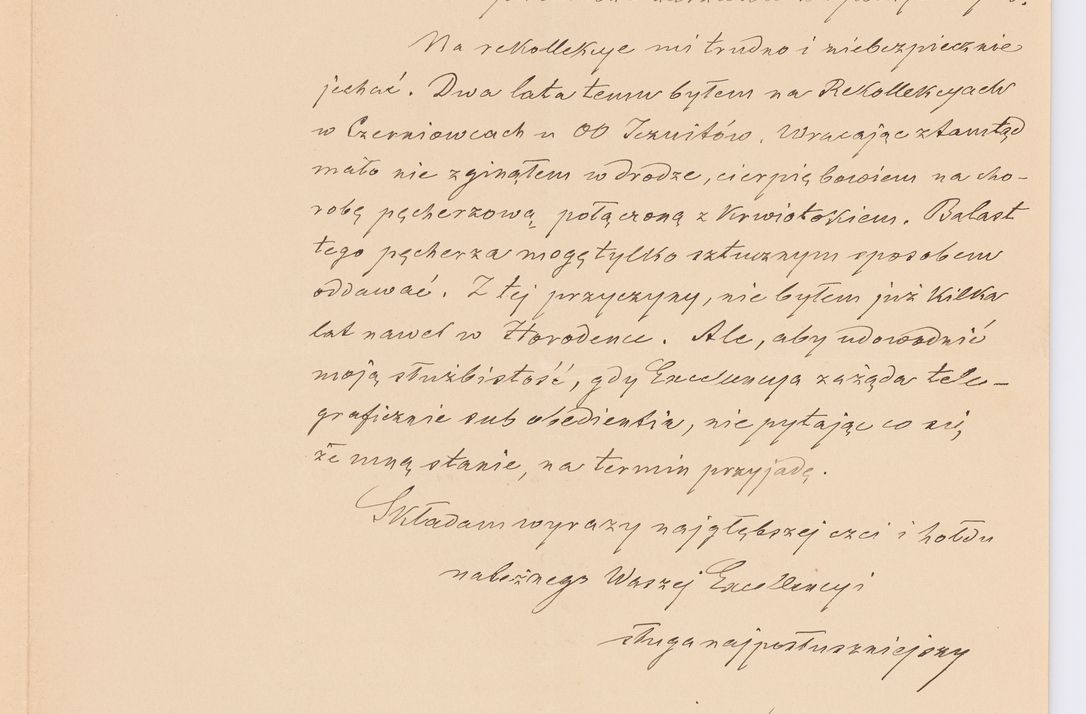 Na rekollekcye mi trudno i niebezpiecznie
jechać. Dwa lata temu byłem na Rekollekcyach
w Czerniowcach u OO Jezuitów. Wracając ztamtąd
mało nie zginąłem w drodze, cierpię bowiem na cho-
robę pęcherzową połączoną z krwiotokiem. Balast
tego pęcherza mogę tylko sztucznym sposobem
oddawać. Z tej przyczyny, nie byłem już kilka
lat nawet w Horodence. Ale, aby udowodnić
moją służbistość, gdy Excellencya zażąda tele-
graficznie sub obedientia, nie pytając co się
ze mną stanie, na termin przyjadę.
Składam wyrazy najgłębszej czci i hołdu
należnego Waszej Excellencyi
sługa najposłuszniejszy